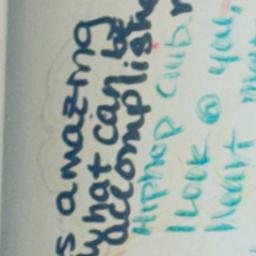 s amazing
what can be
accomplish
Hiphop club.
I look @ you,
Heart